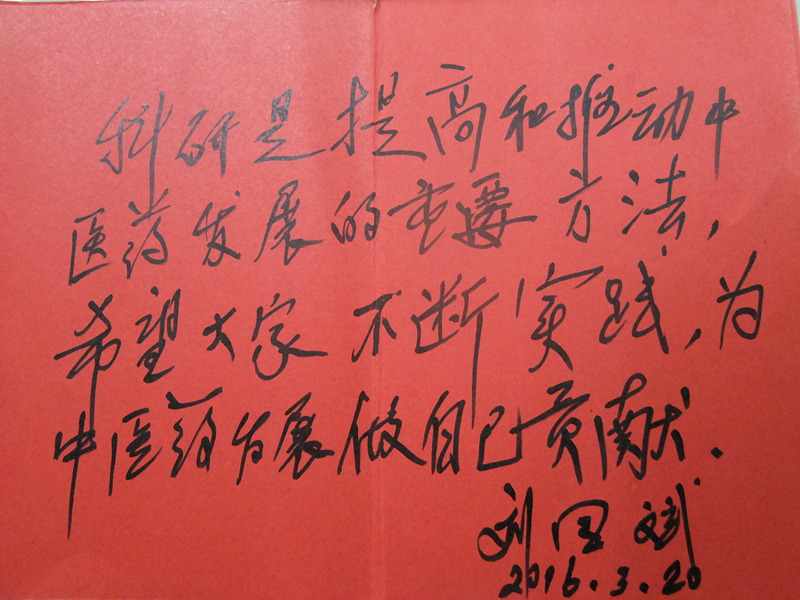 科研是提高和推动中
医药发展的重要方法，
希望大家不断实践，为
中医药发展做自己贡献．
刘国斌
2016.3.20